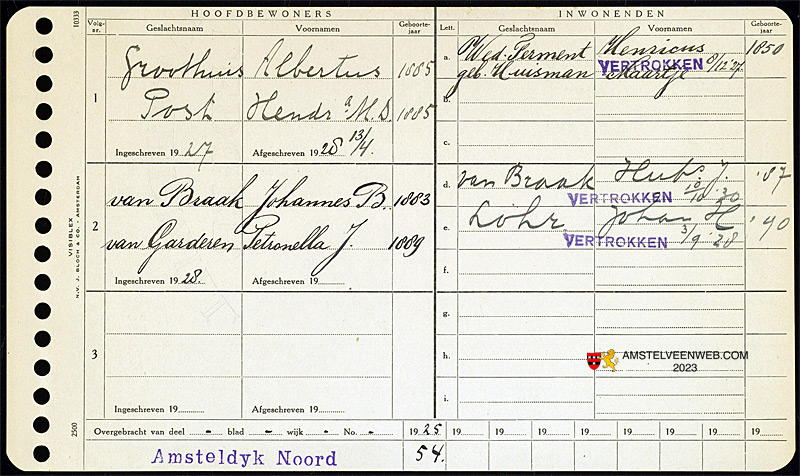 HOOFDBEWONERS
Volg-nr. Geslachtsnaam Voornamen Geboorte-jaar
1
Groothuis Albertus 1885
Post Hendr a M. D. 1885
Ingeschreven 19 27 Afgeschreven 19 28 13/4.
2
van Braak Johannes B. 1883
van Garderen Petronella J. 1889
Ingeschreven 19 28. Afgeschreven 19
3
Ingeschreven 19 Afgeschreven 19
INWONENDEN
Lett. Geslachtsnaam Voornamen Geboorte-jaar
a. Wed. Ferment Henricus 1850
geb. Huisman Maartje VERTROKKEN /12 '27
b.
c.
d. van Braak Hubs J. '87
VERTROKKEN 10/10 '30
e. Löhr Johan H '90
VERTROKKEN 3/9 '28
f.
g.
h.
i.
Overgebracht van deel - blad - wijk - No. - 19 25 19 19 19 19 19 19 19 19
Amsteldyk Noord 54.
10333
VISIBLEX
N.V. J. BLOCH & CO. - AMSTERDAM
2500
AMSTELVEENWEB.COM
2023